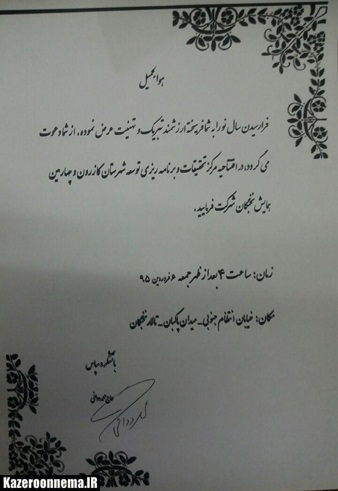 هو الجمیل
فرارسیدن سال نو را به شما فرهیخته ارزشمند تبریک و تهنیت عرض نموده، از شما دعوت
می گردد، در افتتاحیه مرکز تحقیقات و برنامه ریزی توسعه شهرستان کازرون و چهارمین
همایش نخبگان شرکت فرمایید.
زمان: ساعت ۴ بعد از ظهر جمعه ۶ فروردین ۹۵
مکان: خیابان انتظام جنوبی - میدان پاکبان - تالار نخبگان
با تشکر و سپاس
Kazeroonnema.IR